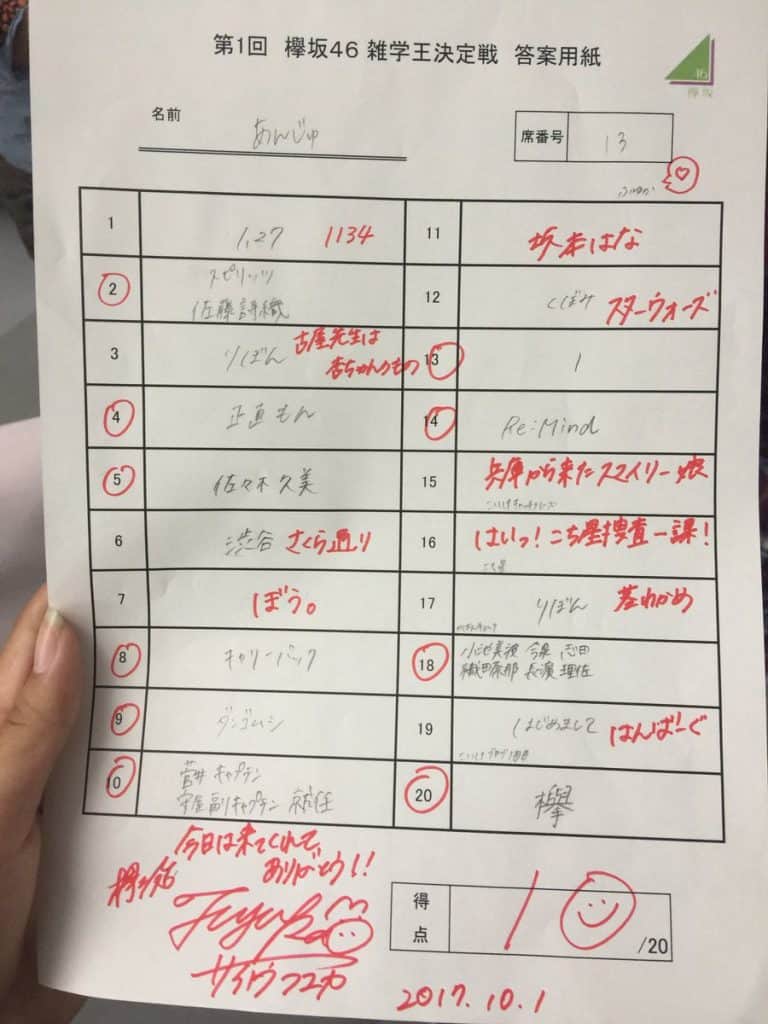 第1回 欅坂46 雑学王決定戦 答案用紙
46
欅坂
名前
あんじゅ
席番号
13
1
1,27 1134
2
スピリッツ
佐藤詩織
3
りぼん 古屋先生は
杏ちゃんのもの
4
正直もん
5
佐々木久美
6
渋谷 さくら通り
7
ぼう。
8
キャリーバック
9
ダンゴムシ
10
菅井 キャプテン
守屋副キャプテン 就任
11
坂本はな
12
くぼみ スターウォーズ
13
1
14
Re:Mind
15
兵庫から来たスマイリー娘
16
はいっ!こち星捜査一課!
こち星
17
りぼん 茎わかめ
18
小池美波 今泉 志田
織田奈那 長濱 理佐
19
はじめまして はんばーぐ
20
欅
今日は来てくれて、
ありがとう!!
欅坂46
Fuyuka
サイトウフユカ
得点
10
/20
2017.10.1